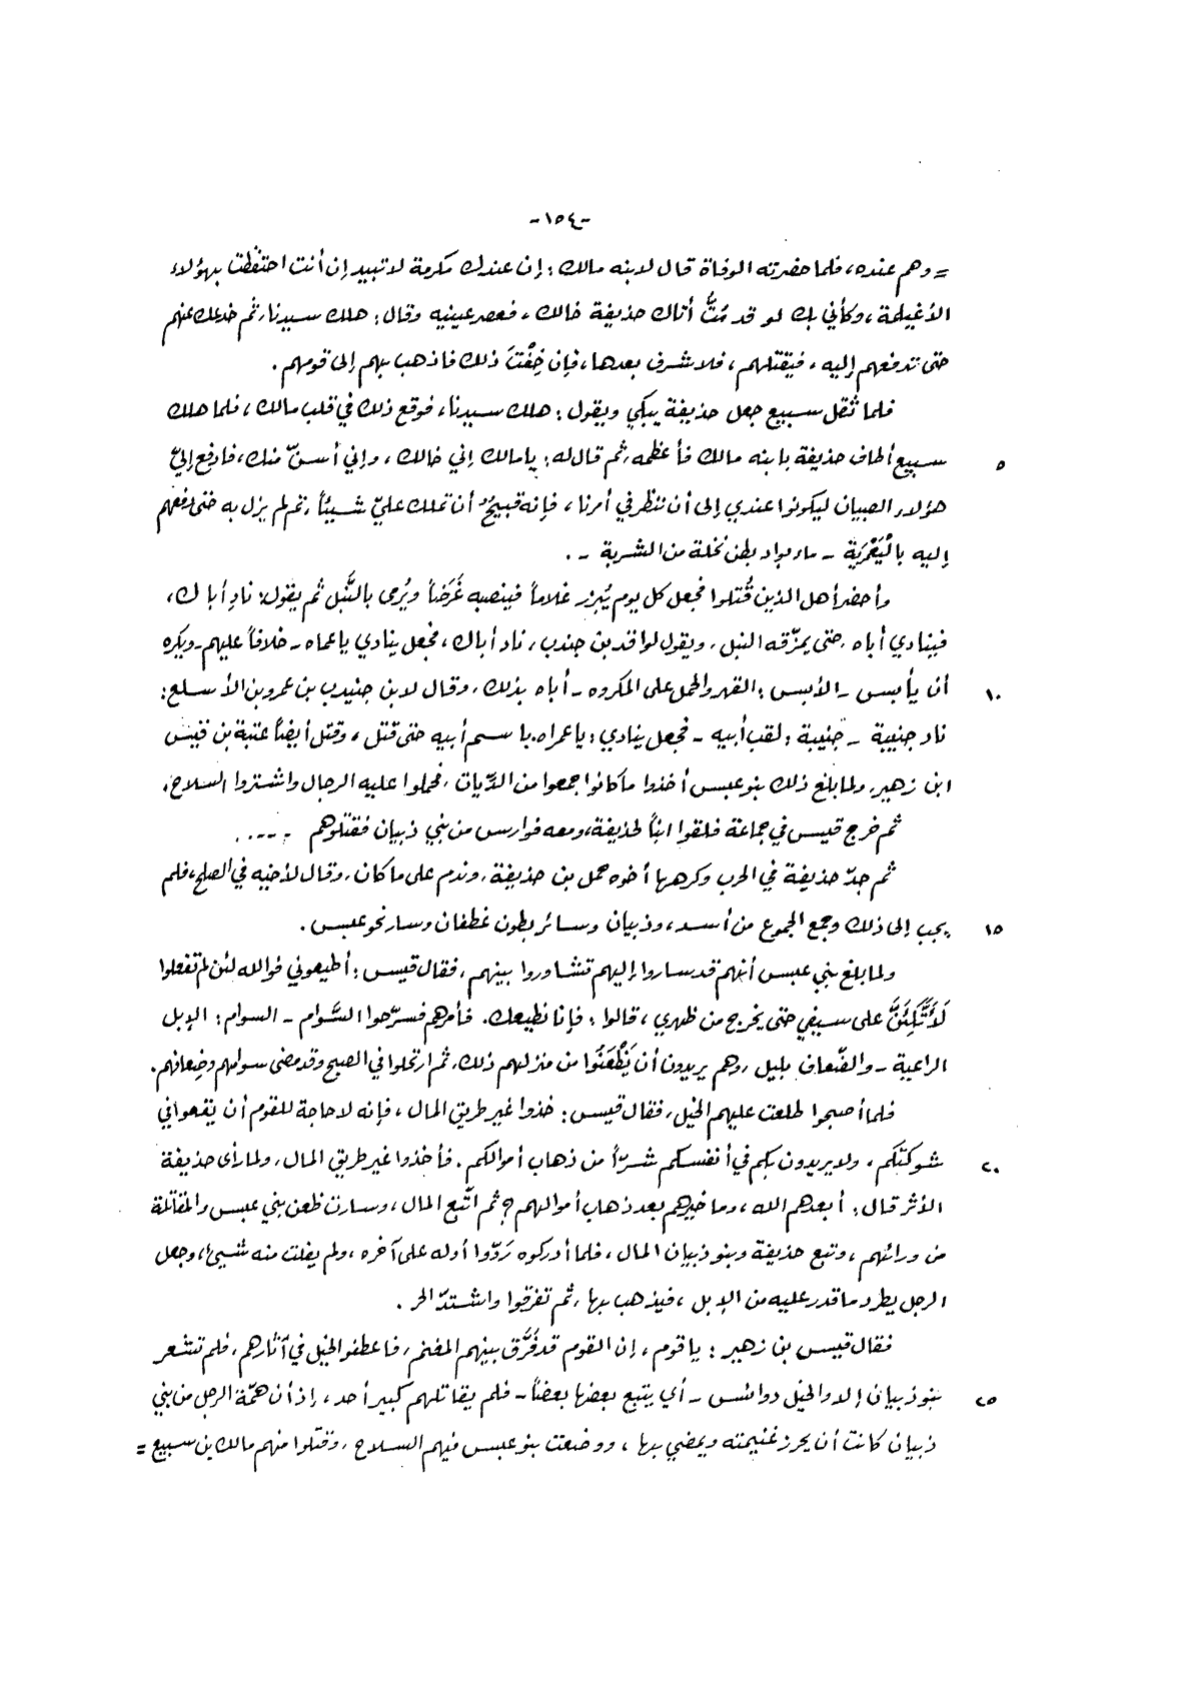 -١٥٤-
= وهم عنده، فلما حضرته الوفاة قال لابنه مالك: إن عندك مكرمة لا تبيد إن أنت احتفظت بهؤلاء
الأغيلمة، وكأني بك لو قد مُتُّ أتاك حذيفة خالك، فعصر عينيه وقال: هلك سيدنا، ثم خدعك عنهم
حتى تدفعهم إليه، فيقتلهم، فلا شرف بعدها، فإن خِفْتَ ذلك فاذهب بهم إلى قومهم.
فلما ثقل سبيع جعل حذيفة يبكي ويقول: هلك سيدنا، فوقع ذلك في قلب مالك، فلما هلك
٥ سبيع أطاف حذيفة بابنه مالك فأعظمه، ثم قال له: يا مالك إني خالك، وإني أسنّ منك، فادفع إليّ
هؤلاء الصبيان ليكونوا عندي إلى أن ننظر في أمرنا، فإنه قبيحٌ أن تملك عليّ شيئاً، ثم لم يزل به حتى دفعهم
إليه بالْيَعْمَرِيَة - ماء بواد بطن نخلة من الشربة -.
وأحضر أهل الذين قُتلوا فجعل كل يوم يُبرز غلاماً فينصبه غَرَضاً ويُرمى بالنَّبل ثم يقول: نادِ أباك،
فينادي أباه، حتى يمزّقه النبل، ويقول لواقد بن جندب، ناد أباك، فجعل ينادي يا عماه - خلافاً عليهم - ويكره
١٠ أن يأبس - الأبس: القهر والحمل على المكروه - أباه بذلك، وقال لابن جنيدب بن عمرو بن الأسلع:
ناد جنيبة - جنيبة: لقب أبيه - فجعل ينادي: يا عمراه، باسم أبيه حتى قتل، وقتل أيضاً عتبة بن قيس
ابن زهير، ولما بلغ ذلك بنو عبس أخذوا ما كانوا جمعوا من الدّيات، فحملوا عليه الرجال واشتروا السلاح،
ثم خرج قيس في جماعة فلقوا ابناً لحذيفة، ومعه فوارس من بني ذبيان فقتلوهم ....
ثم جدّ حذيفة في الحرب وكرهها أخوه حمل بن حذيفة، وندم على ما كان، وقال لأخيه في الصلح، فلم
١٥ يجب إلى ذلك وجمع الجموع من أسد، وذبيان وسائر بطون غطفان وسار نحو عبس.
ولما بلغ بني عبس أنهم قد ساروا إليهم تشاوروا بينهم، فقال قيس: أطيعوني فوالله لئن لم تفعلوا
لَأَتَّكِئَنَّ على سيفي حتى يخرج من ظهري، قالوا: فإنا نطيعك. فأمرهم فسرّحوا السَّوام - السوام: الإبل
الراعية - والضّعاف بليل، وهم يريدون أن يَظْعَنُوا من منزلهم ذلك، ثم ارتحلوا في الصبح وقد مضى سوامهم وضعافهم.
فلما أصبحوا طلعت عليهم الخيل، فقال قيس: خذوا غير طريق المال، فإنه لا حاجة للقوم أن يقعوا في
٢٠ شوكتكم، ولا يريدون بكم في أنفسكم شرّاً من ذهاب أموالكم. فأخذوا غير طريق المال، ولما رأى حذيفة
الأثر قال: أبعدهم الله، وما خيرهم بعد ذهاب أموالهم؟ ثم اتّبع المال، وسارت ظعن بني عبس والمقاتلة
من ورائهم، وتبع حذيفة وبنو ذبيان المال، فلما أدركوه رَدّوا أوله على آخره، ولم يفلت منه شيئ، وجعل
الرجل يطرد ما قدر عليه من الإبل، فيذهب بها، ثم تفرقوا واشتدّ الحر.
فقال قيس بن زهير: يا قوم، إن القوم قد فَرَّق بينهم المغنم، فاعطفوا الخيل في آثارهم، فلم تشعر
٢٥ بنو ذبيان إلا والخيل دوائس - أي يتبع بعضها بعضاً - فلم يقاتلهم كبير أحد، إذ أن همّة الرجل من بني
ذبيان كانت أن يحرز غنيمته ويمضي بها، ووضعت بنو عبس فيهم السلاح، وقتلوا منهم مالك بن سبيع =